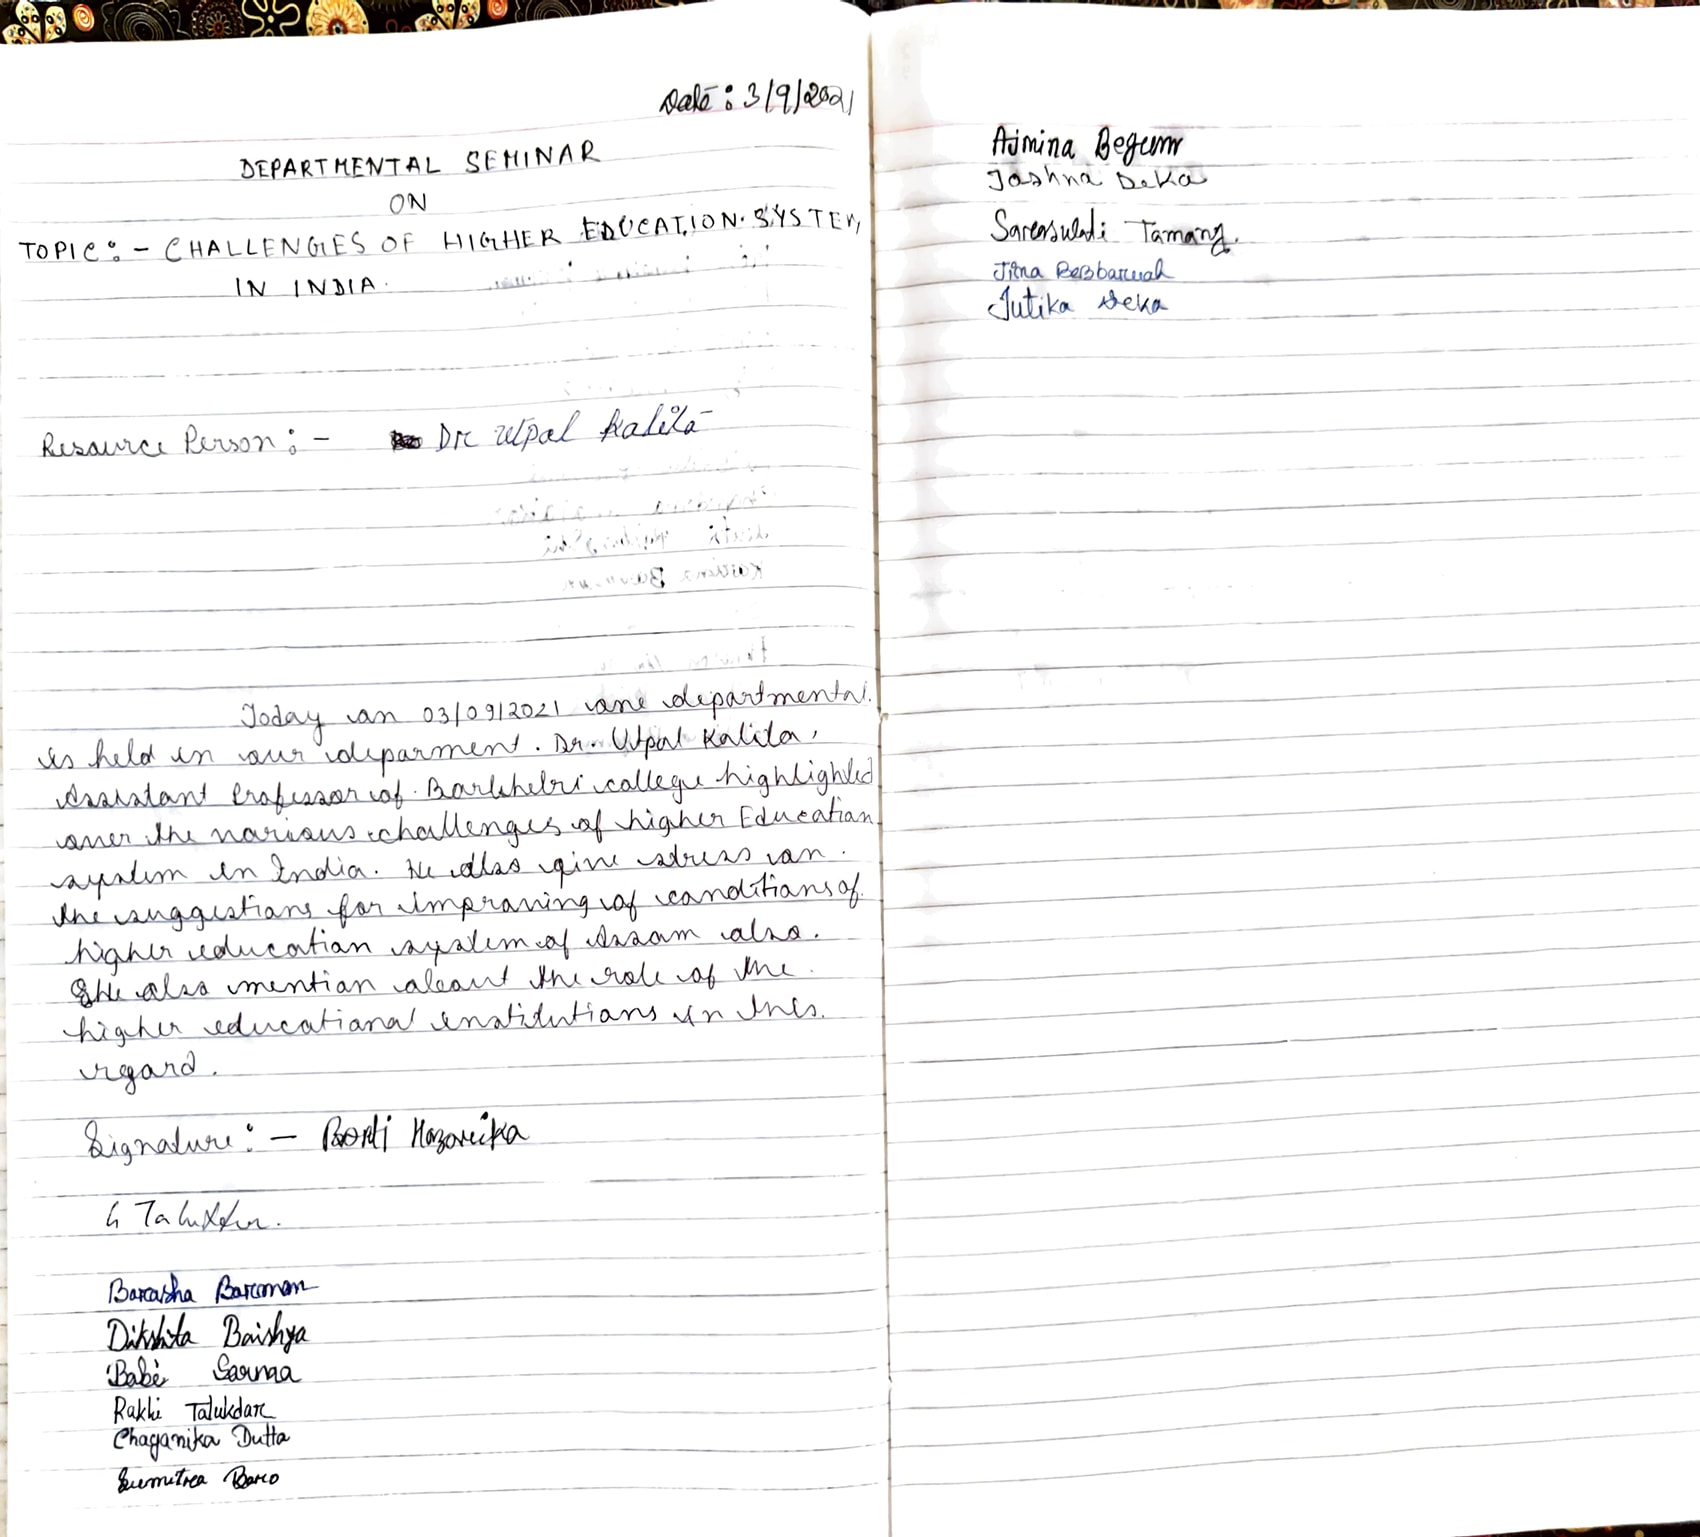 Date : 3/9/2021
DEPARTMENTAL SEMINAR
ON
TOPIC : - CHALLENGES OF HIGHER EDUCATION SYSTEM
IN INDIA.
Resource Person : - Dr Utpal Kalita
Today on 03/09/2021 one departmental
is held in our deparment. Dr. Utpal Kalita,
Assistant Professor of Barkhetri college highlighted
over the various challenges of higher Education
system in India. He also give stress on
the suggestions for improving of conditions of
higher education system of Assam also.
He also mention about the role of the
higher educational institutions in this
regard.
Signature : - Hazarika
Talukdar.
Barasha Barman
Dikshita Baishya
Babi Sarma
Rakhi Talukdar
Chayanika Dutta
Sumitra Boro
Ajmina Begum
Jashna Deka
Tamang.
Jitna Bezbaruah
Jutika Deka